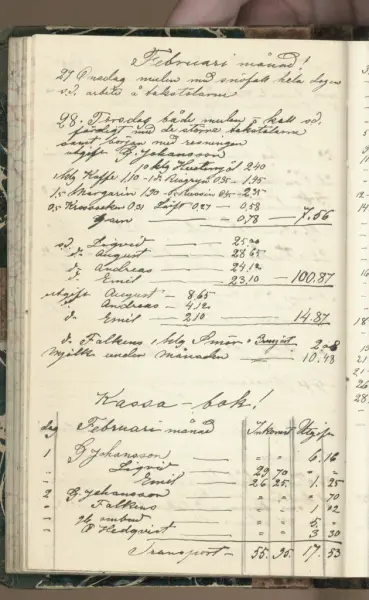 Februari månad!
27 Onsdag mulen med snöfall hela dagen
s.d. arbete å takstolarna
28. Torsdag både mulen o kall s.d.
färdigt med de större takstolarna
samt börjar med resningen
utgift G. Johansson
10 hbg 2,40
1 hbg Kaffe 1,10 - 1 d. 0,35 - 1,45
1,5 Margarin 1,70 - 0,65 - 2,35
0,31 0,27 - 0,58
- 0,78 - 7.56
s.d. Sigvid - 25,00
d. August - 28 65
d. Andreas - 24,12
d. Emil - 23,10 - 100,87
utgift August - 8,65
d. Andreas - 4,12
d. Emil - 2,10 - 14.87
d. Falkens 1 hbg Smör 2,08
Mjölk under månaden - 10.43
Kassa-bok!
dag Februari månad Inkomst Utgifter
1 G Johansson - " " 6. 16
Sigvid - 29 70 " "
Emil - 26 25. 1. 25
2 G. Johansson - " " " 70
" Falkens - " " 1 02
" ombud - " " 5. "
" Hedqvist - " " 3 30
Transport - 55. 95. 17. 53